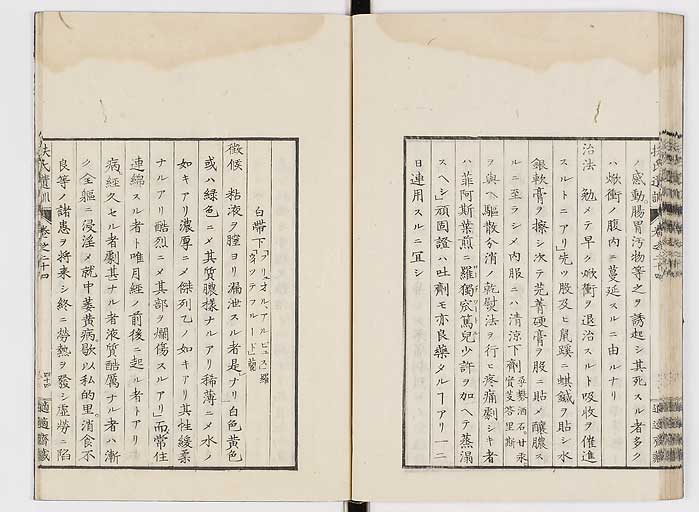 ノ感動腸胃汚物等之ヲ誘起シ其死スル者多ク
ハ焮衝ノ腹内ニ蔓延スルニ由ルナリ
治法 勉メテ早ク焮衝ヲ退治スルト吸收ヲ催進
スルトニアリ先ツ股及ヒ鼠蹊ニ蜞鍼ヲ貼シ水
銀軟膏ヲ擦シ次テ芫菁硬膏ヲ股ニ貼メ釀膿ス
ルニ至ラシメ内服ニハ清涼下劑
ヲ與ヘ驅散分消ノ乾熨法ヲ行ヒ疼痛劇シキ者
ハ菲阿斯葉煎ニ羅獨宸篤兒少許ヲ加ヘテ蒸溻
スヘシ頑固證ハ吐劑モ亦良藥タルヿアリ一二
日連用スルニ冝シ
白帶下
徴候 粘液ヲ膣ヨリ漏泄スル者是ナリ白色黄色
或ハ綠色ニメ其質膿樣ナルアリ稀薄ニメ水ノ
如キアリ濃厚ニメ傑列乙ノ如キアリ其性緩柔
ナルアリ酷烈ニメ其部ヲ爛傷スルアリ而常住
連綿スル者ト唯月經ノ前後ニ起ル者トアリ
病經久セル者劇甚ナル者液質酷厲ナル者ハ漸
ク全軀ニ浸淫メ就中萎黄病歇以私的里消食不
良等ノ諸患ヲ將来シ終ニ勞熱ヲ發シ虚勞ニ陷
卷之二十四
四十四
適適齋藏